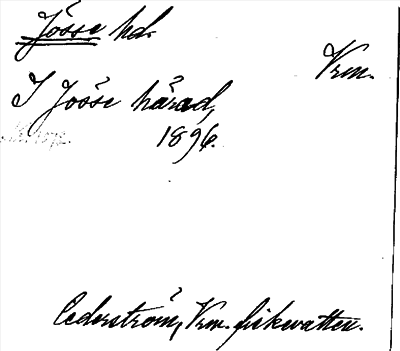 Jösse hd.
Vrm.
I Jösse härad,
1896.
Cederström, Vrm. fiskvatten.